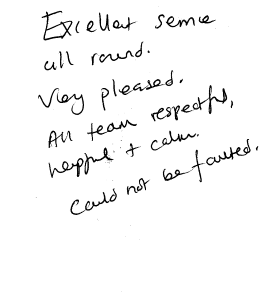 Excellent service
all round.
Very pleased.
All team respectful,
helpful + calm.
Could not be faulted.